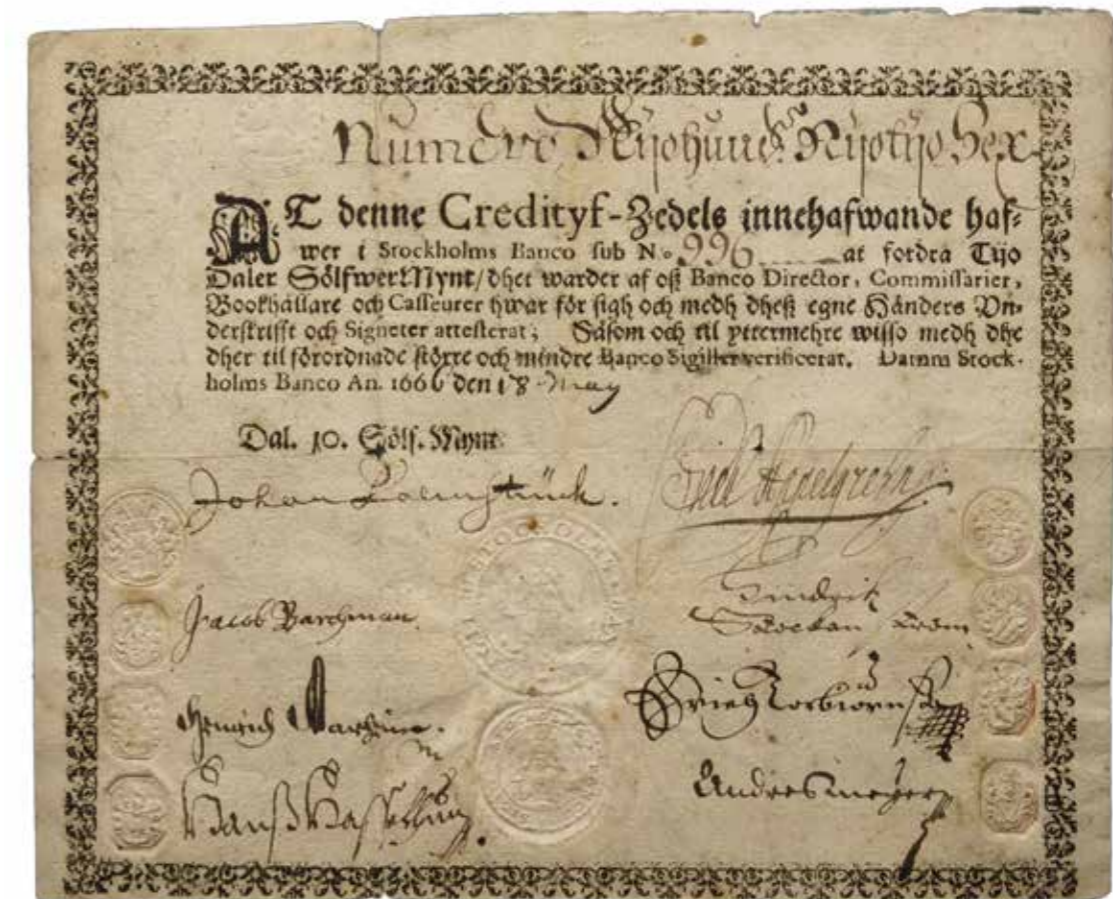 Numero Nijohund. Nijotijo Sex
AT denne Credityf-Zedels innehafwande haf-
wer i Stockholms Banco sub No. 996 at fordra Tijo
Daler SölfwerMynt/ dhet warder af oß Banco Director, Commissarier,
Bookhållare och Casseurer hwar för sigh och medh dheß egne Händers Vn-
derskrifft och Signeter attesterat; Såsom och til yttermehre wisso medh dhe
dher til förordnade större och mindre Banco Sigiller verificerat. Datum Stock-
holms Banco An. 1666 den 18 May
Dal. 10. Sölf. Mynt.
Johan Palmstruck.
Jacob Barchman
Hindrik
Andres Meyer